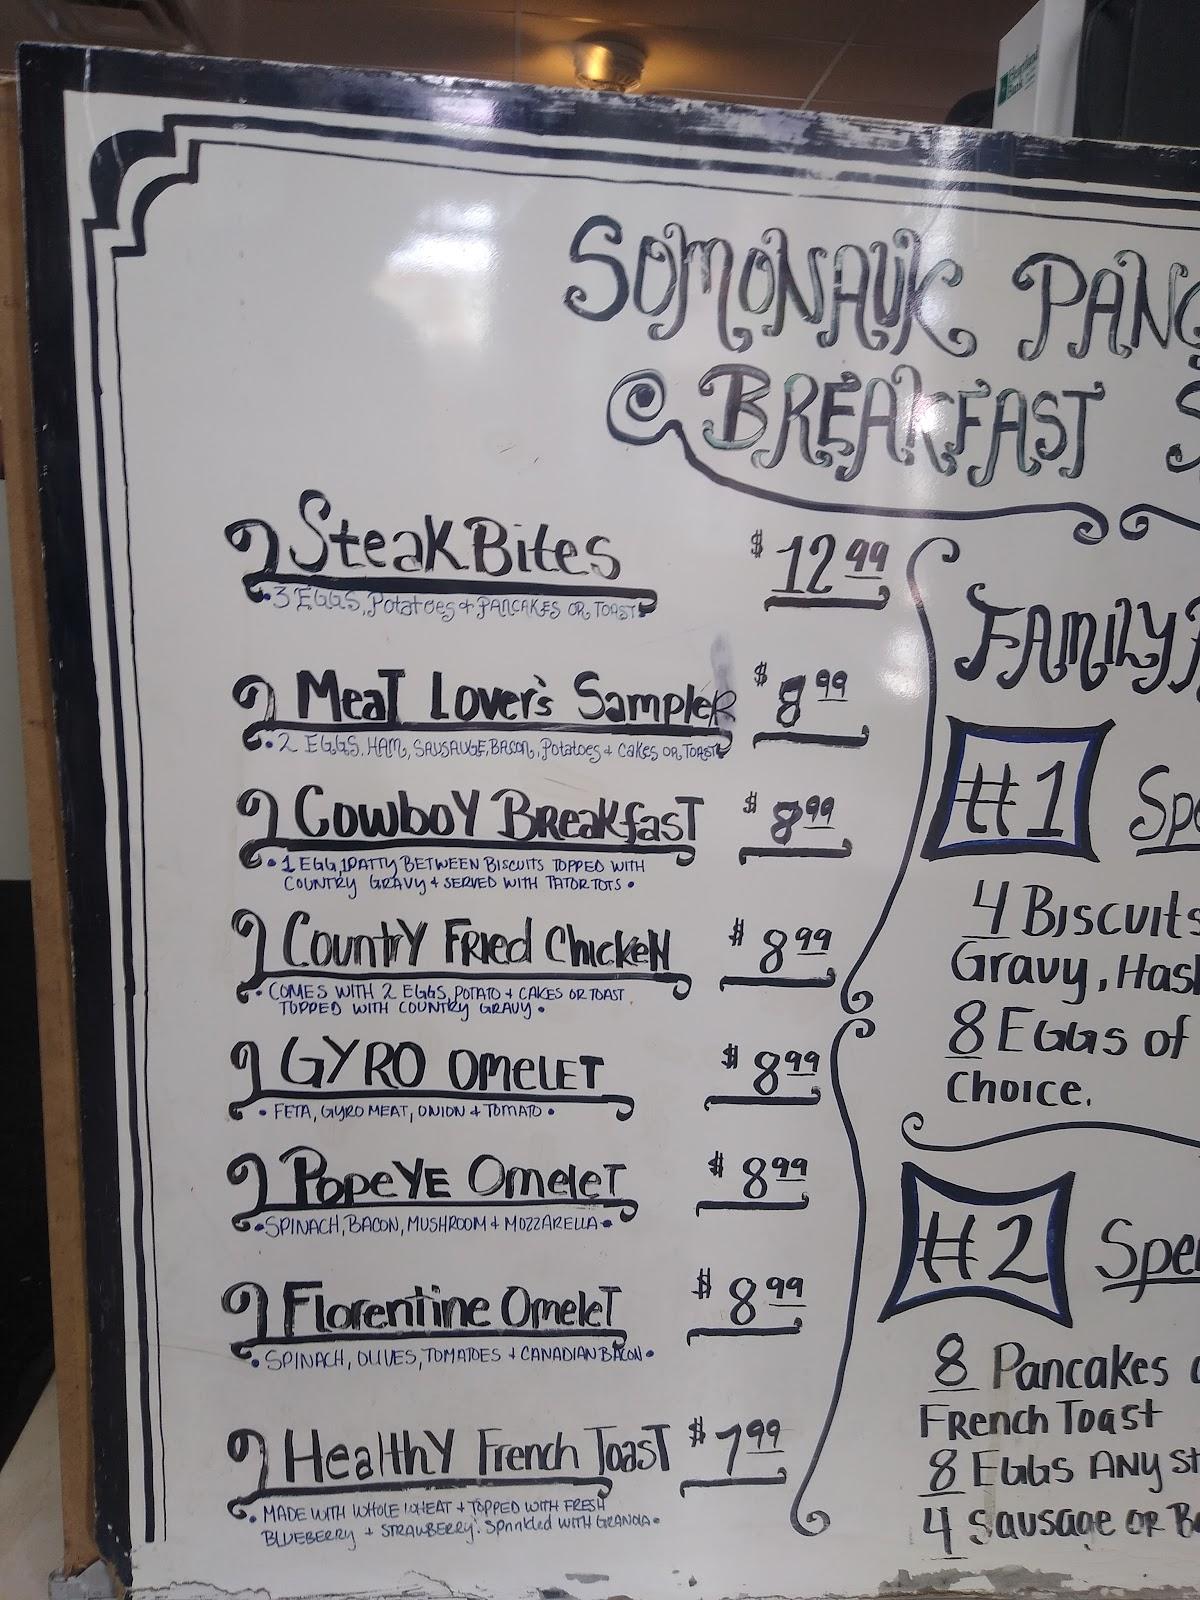 SOMONAUK PANC
BREAKFAST S
Steak Bites $12.99
• 3 EGGS, Potatoes + PANCAKES OR TOAST •
Meat Lover's Sampler $8.99
• 2 EGGS, HAM, SAUSAUGE, BACON, Potatoes + Cakes OR TOAST •
Cowboy Breakfast $8.99
• 1 EGG, 1 PATTY BETWEEN BISCUITS TOPPED WITH
COUNTRY GRAVY + SERVED WITH TATOR TOTS •
Country Fried Chicken $8.99
• COMES WITH 2 EGGS, POTATO + CAKES OR TOAST
TOPPED WITH COUNTRY GRAVY •
GYRO OMELET $8.99
• FETA, GYRO MEAT, ONION + TOMATO •
Popeye Omelet $8.99
• SPINACH, BACON, MUSHROOM + MOZZARELLA •
Florentine Omelet $8.99
• SPINACH, OLIVES, TOMATOES + CANADIAN BACON •
Healthy French Toast $7.99
• MADE WITH WHOLE WHEAT + TOPPED WITH FRESH
BLUEBERRY + STRAWBERRY. Sprinkled WITH GRANOLA •
FAMILY
#1 Spe
4 Biscuits
Gravy, Hash
8 Eggs of
Choice.
#2 Spe
8 Pancakes
French Toast
8 Eggs ANY St
4 Sausage or Ba